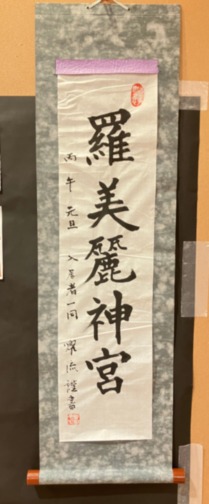 羅美麗神宮
丙午 元旦 入居者一同